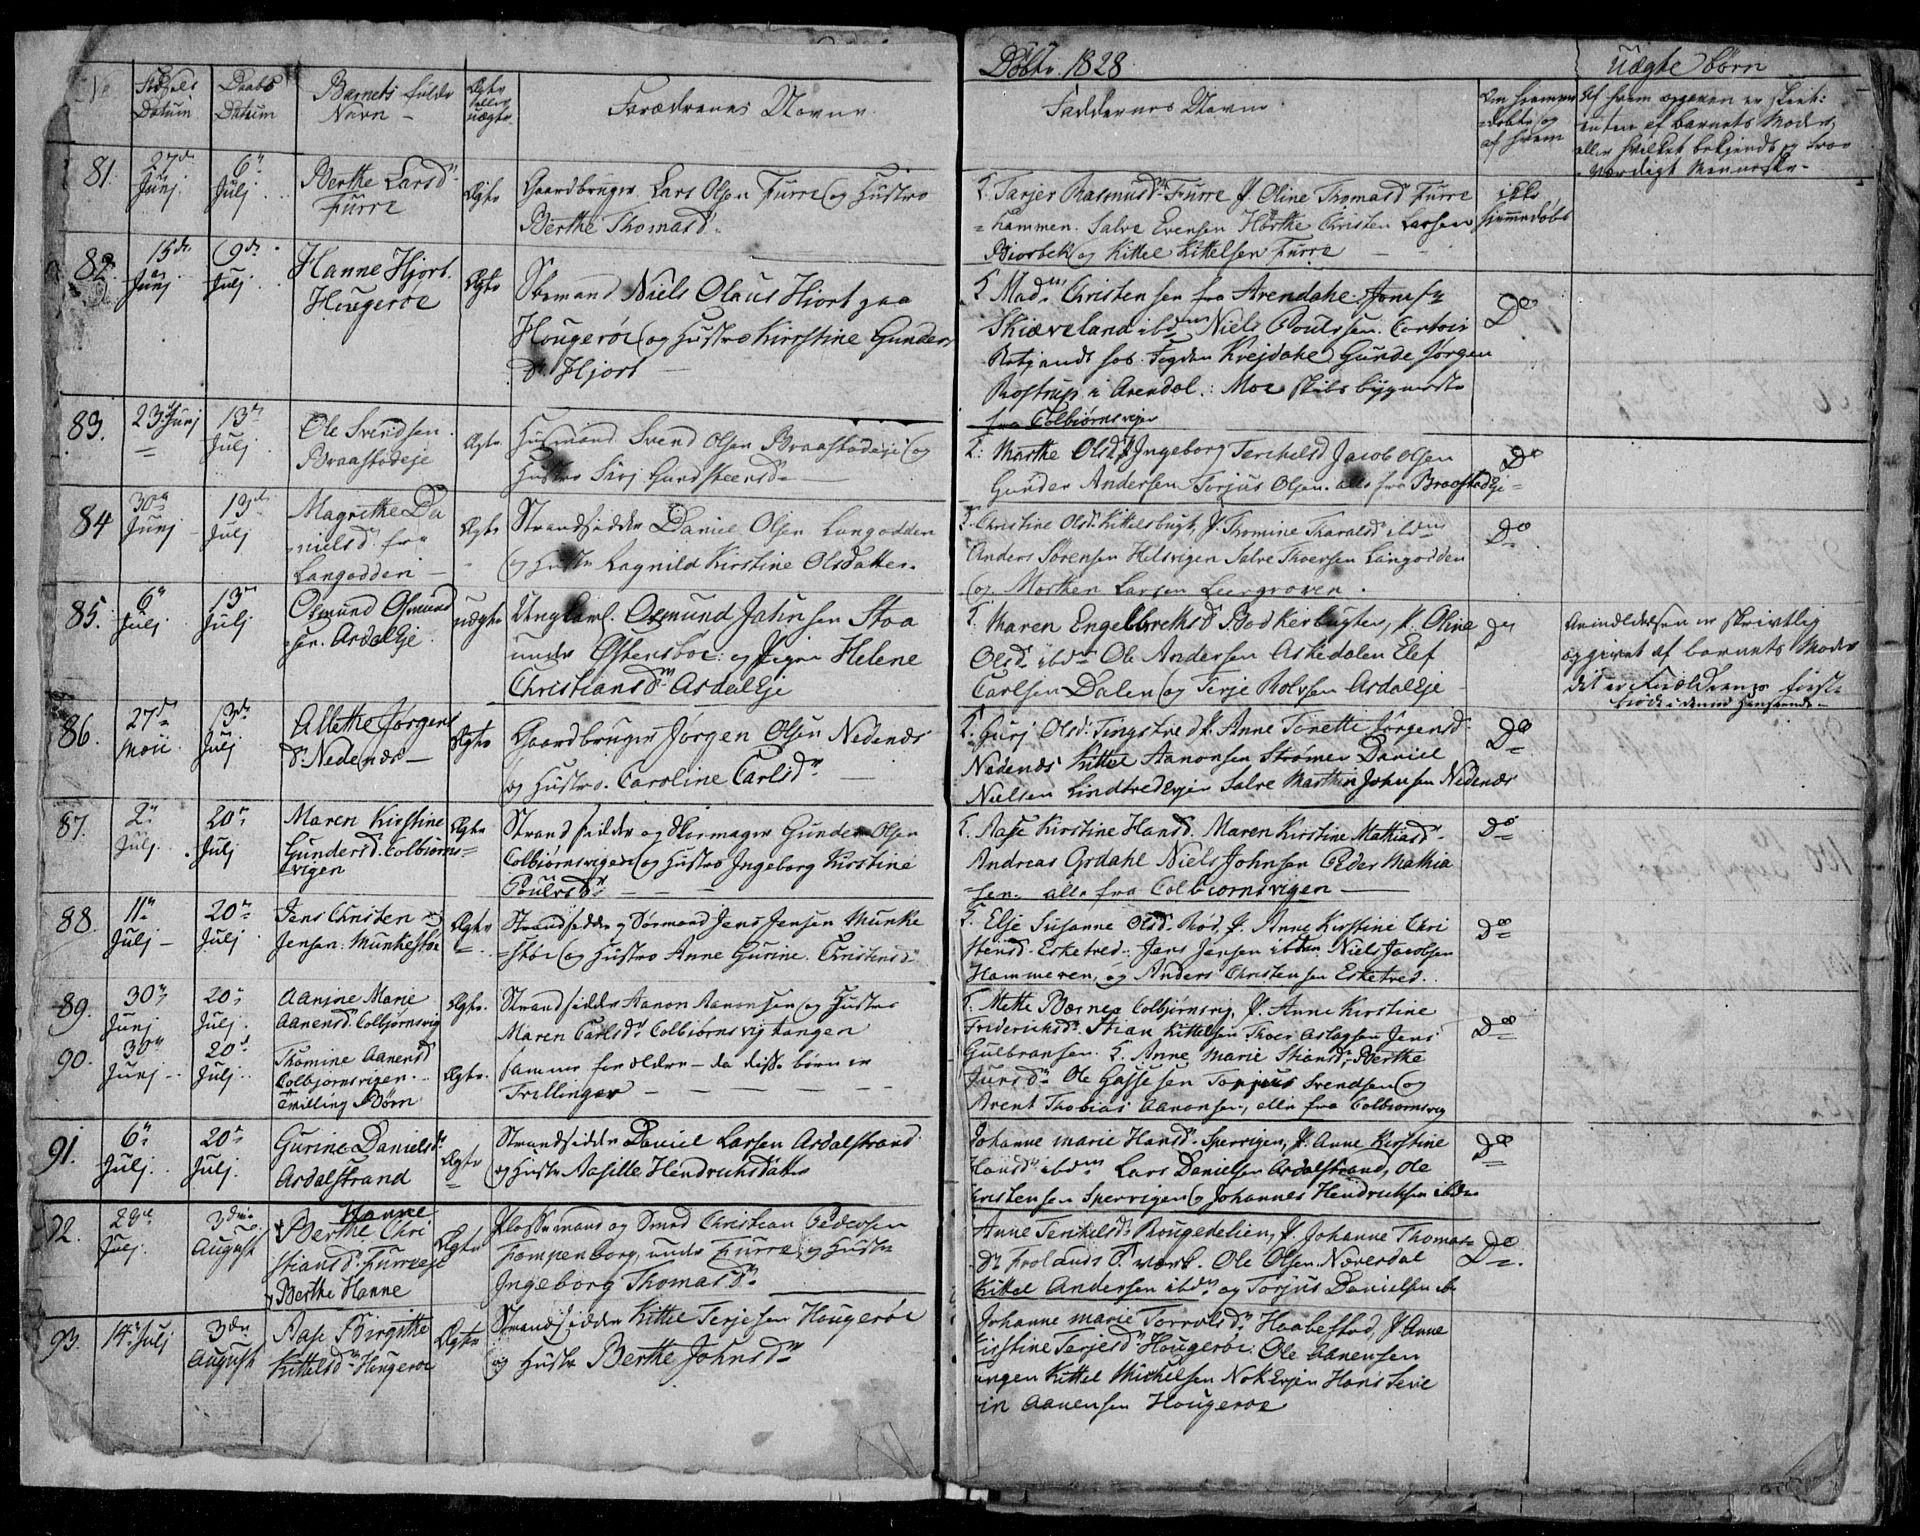 Døbte. 1828
Uægte børn
No
Fødsels Datum
Daabs Datum
Barnets fulde Navn
Ægte eller uægte
Forældrenes Navne
Faddernes Navne
Om hjemmedøbt og af hvem
81.
27de Junj
6te Julj
Berthe Larsd.
Furre
Ægte
Gaardbruger Lars Olsen Furre og Hustro
Berthe Thomasd.
T. Tarjer Rasmusd. Furre J. Oline Thomasd Furre
Salve Evensen Christen Larsen
Biorbek og Kittel Kittelsen Furre
ikke
hjemmedøbt
82.
15de Junj
9de Julj
Hanne Hjort
Hougerøe
Ægte
Niels Olaus Hjort paa
Hougerøe og Hustro Kirstine Gunders
d. Hjort
T. Mad. Christensen fra Arendahl
Skiæveland ibdm Niels Poulssen
hos Fogden Krejdahl Gunde Jørgen
Rostrup i Arendal. Moe skibsbygmester
fra Colbiørnsvigen
Do
83.
23de Junj
13de Julj
Ole Svendsen
Braastadeje
Ægte
Husmand Svend Olsen Braastadeje og
Hustro Siri Gundsteensd.
T. Marthe Olsd. J. Ingeborg Terchelsd Jacob Olsen
Gunder Andersen Terjus Olsen alle fra BraastadEje
Do
84
30te Junj
13de Julj
Magrethe Da
nielsd. fra
Langodden
Ægte
Strandsidder Daniel Olsen Langodden
og Hustr Ragnild Kirstine Olsdatter.
T. Christine Olsd. Kittelsbugt, J. Thomine Tharalsd. ibdm
Anders Sørensen Helvigen Salve Thoersen Langodden
og Morthen Larsen Leergroven.
Do
85.
6te Julj
13de Julj
Osmund Osmund
sen. ArdalEje
uægte
Ungkarl. Osmund Jahnsen Stoa
under Østensboe: og Pigen Helene
Christiansd. ArdalEje
T. Maren Engelbrethsd Bodkerbugten, J. Oline
Olsd ibdm Ole Andersen Askedalen Elef
Carlsen Dalen og Terje Rolvsen ArdalEje
Do
Anmeldelsen er skrivtlig
opgivet af barnets Moder
det er Forældrenes første
86.
27de Maii
13de Julj
Allethe Jørgens
d. Nedenæs
Ægte
Gaardbruger Jørgen Olsen Nedenæs
og Hustro. Caroline Carlsd.
T. Gurj Olsd. Tingstved J. Anne Tonette Jørgensd
Nedenæs Kittel Aanonsen Strømen Daniel
Nielsen Salve Marthin Johnsen Nedenæs
Do
87.
2de Julj
20de Julj
Maren Kirstine
Gundersd. Colbiørns
vigen
Ægte
Strandsidder og Skomager Gunder Olsen
Colbiørnsvigen og Hustro Ingeborg Kirstine
Poulsd.
T. Aase Kirstine Hansd. Maren Kirstine Mathiasd.
Andreas Grdahl Niels Johnsen Peder Mathia
sen alle fra Colbiornsvigen
Do
88.
11te Julj
20de Julj
Jens Christen
Jensen Munkestøe
Ægte
Strandsidder og Sømand Jens Jensen Munke
støe og Hustro Anne Gurine Christensd.
T. Else Susanne Olsd. Røed, J. Anne Kirstine Chri
stensd. Esketved. Jens Jensen ibdm. Niels Jacobsen
Hammeren, og Anders Christensen Esketved.
Do
89.
30te Junj
20de Julj.
Aanine Marie
Aanensd. Colbjørnsvig
Ægte.
Strandsidder Aanon Aanonsen og Hustro
Maren Carlsd. Colbiørnsvigtangen
T. Mette Bærnes Colbjørnsvig, J. Anne Kirstine
Friderichsd. Stian Kittelsen Thoer Aslagsen Jens
Gulbransen.
Do
90.
30te Junj
20de Julj
Thomine Aanensd
Colbjørnsvigen
Tvilling Børn
Ægte.
samme forældre – da disse børn er
Tvillinger
T. Anne Marie Stiansd. Berthe
Ole Gassesen Torjus Svendsen og
Arent Thobias Aanonsen, alle fra Colbiornsvig
91.
6te Julj.
20de Julj.
Gurine Danielsd.
Ardalstrand
Ægte
Strandsidder Daniel Larsen Ardalstrand
og Hustr Aasille Hendrichsdatter
Johanne Marie Hansd. Spervigen, J. Anne Kirstine
Hansd ibdm Lars Danielsen Ardalstrand, Ole
Christensen Spervigen og Johannes Hendrichsen ibdm
Do
92.
29de Julj.
3die August
Hanne
Berthe Chri
stiansd. Furreeje
Berthe Hanne
Ægte
Plassemand og Smed Christian Pedersen
Tompenborg under Furre, og Hustr
Ingeborg Thomasd.
Anne Terchelsd. Rougedelien, J. Johanne Thomas
d. Frolands værk. Ole Olsen Næverdal
Kittel Andersen ibdm og Torjus Danielsen
Do.
93.
14de Julj
3die August
Aase Birgitte
Kittelsd. Hougerøe
Ægte
Strandsidder Kittel Terjesen Hougerøe
og Hustr Berthe Johnsd.
Johanne Marie Torvalsd. Haabestad, J. Anne
Kirstine Terjesd. Hougerøe. Ole Aanensen
Kittel Michelsen
Aanensen Hougerøe